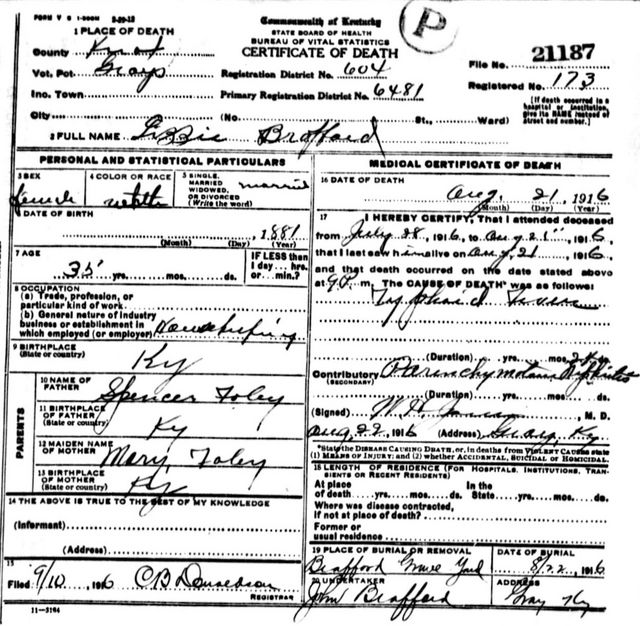 FORM V S 1-500M 3-29-13
Commonwealth of Kentucky
P
STATE BOARD OF HEALTH
BUREAU OF VITAL STATISTICS
CERTIFICATE OF DEATH
1 PLACE OF DEATH
County Knox
Vot. Pct. Grays
Inc. Town
City (No. St., Ward)
Registration District No. 604
Primary Registration District No. 6481
File No. 21187
Registered No. 173
[If death occurred in a hospital or institution, give its NAME instead of street and number.]
2 FULL NAME Lizzie Brafford
PERSONAL AND STATISTICAL PARTICULARS
3 SEX
Female
4 COLOR OR RACE
white
5 SINGLE, MARRIED WIDOWED, OR DIVORCED (Write the word)
married
6 DATE OF BIRTH
, 1881
(Month) (Day) (Year)
7 AGE
35 yrs. mos. ds.
IF LESS than 1 day... hrs. or... min.?
8 OCCUPATION
(a) Trade, profession, or particular kind of work
(b) General nature of industry business or establishment in which employed (or employer) housekeeping
9 BIRTHPLACE
(State or country) Ky
PARENTS
10 NAME OF FATHER Spencer Foley
11 BIRTHPLACE OF FATHER (State or country) Ky
12 MAIDEN NAME OF MOTHER Mary Foley
13 BIRTHPLACE OF MOTHER (State or country) Ky
14 THE ABOVE IS TRUE TO THE BEST OF MY KNOWLEDGE
(Informant)
(Address)
15
Filed 9/10 1916 CB Donaldson
REGISTRAR
11-5184
MEDICAL CERTIFICATE OF DEATH
16 DATE OF DEATH
Aug 21, 1916
(Month) (Day) (Year)
17 I HEREBY CERTIFY, That I attended deceased
from July 28, 1916, to Aug 21", 1916,
that I last saw him alive on Aug 21, 1916,
and that death occurred on the date stated above
at m. The CAUSE OF DEATH* was as follows:
Typhoid Fever
(Duration) yrs. mos. ds.
Contributory Parenchymatous Nephritis
(SECONDARY)
(Duration) yrs. mos. ds.
(Signed) , M. D.
Aug 22, 1916 (Address) Gray, Ky
*State the DISEASE CAUSING DEATH, or, in deaths from VIOLENT CAUSES state (1) MEANS OF INJURY; and (2) whether ACCIDENTAL, SUICIDAL or HOMICIDAL.
18 LENGTH OF RESIDENCE (FOR HOSPITALS, INSTITUTIONS, TRANSIENTS OR RECENT RESIDENTS)
At place of death yrs. mos. ds. In the State yrs. mos. ds.
Where was disease contracted, if not at place of death?
Former or usual residence
19 PLACE OF BURIAL OR REMOVAL
Brafford Grave Yard
DATE OF BURIAL
8/22, 1916
20 UNDERTAKER
John Brafford
ADDRESS
Gray Ky